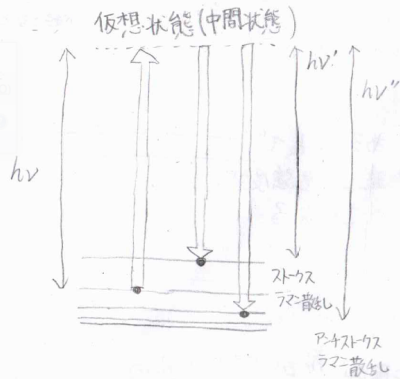 仮想状態(中間状態)
hν
hν'
hν''
ストークス
ラマン散乱
アンチストークス
ラマン散乱